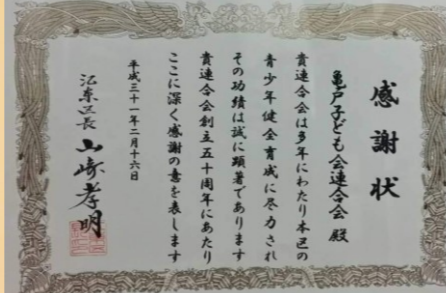 感謝状
亀戸子ども会連合会 殿
貴連合会は多年にわたり本区の
青少年健全育成に尽力され
その功績は誠に顕著であります
貴連合会創立五十周年にあたり
ここに深く感謝の意を表します
平成三十一年二月十六日
江東区長 山﨑孝明